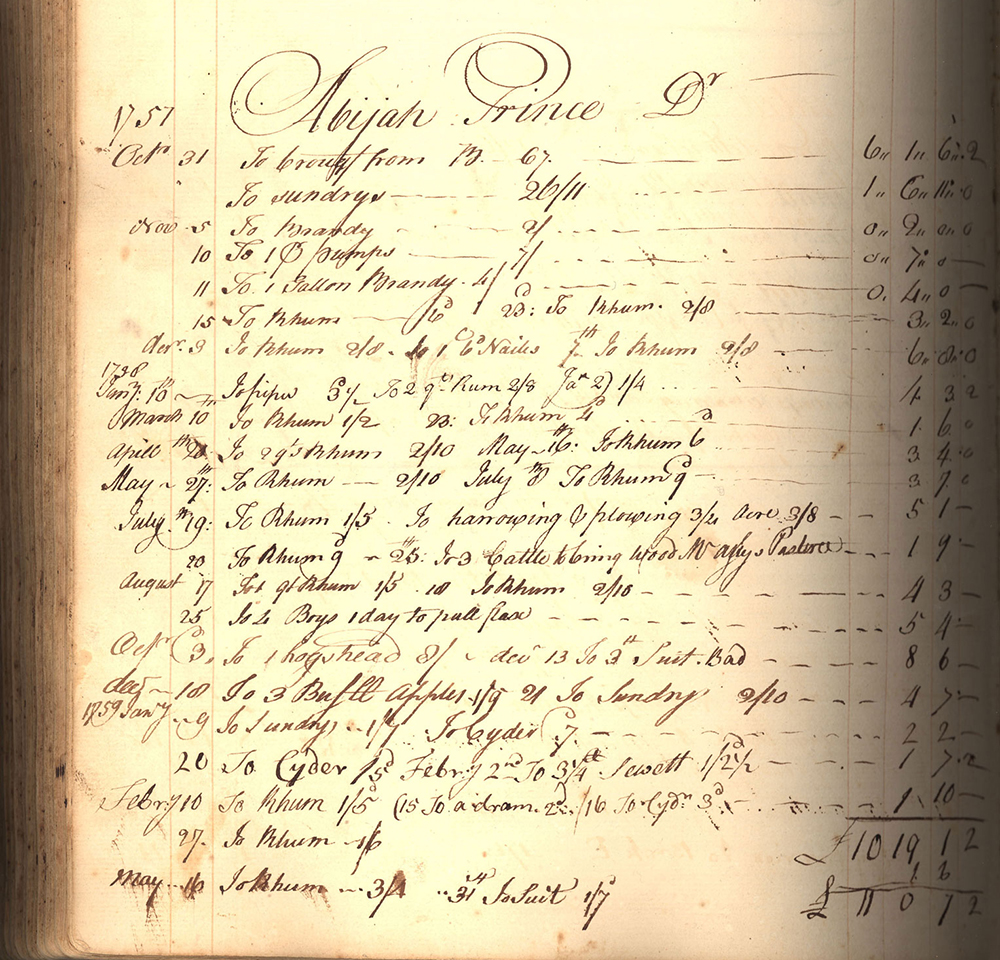 Abijah Prince Dr
1757
Octr 31 To brought from B 67. 6 1 6 2
To sundrys 26/11 1 6 11 0
Nov 5 To Brandy 2/ 0 2 0 0
10 To 1 pr pumps 7/ 0 7 0
11 To 1 Gallon Brandy 4/ 0 4 0
15 To Rhum 6d 23: To Rhum 2/8 3 2 0
decr 3 To Rhum 2/8 To 1 Nails 7th To Rhum 2/8 6 0 0
1758
Jany 10th To pipes To 2 qts Rum 2/8 1/4 4 3 2
March 10th To Rhum 1/2 23: To Rhum 4d 1 6 0
Aprill 20th To 2 qts Rhum 2/10 May 16th: To Rhum 6d 3 4 0
May 27th: To Rhum 2/10 July 8th To Rhum 9d 3 7 0
July 19th: To Rhum 1/5 To harrowing & plowing 3/4 Acre 3/8 5 1
20 To Rhum 9d 25th: To 3 Cattle to bring wood Mr Pasture 1 9
August 17 To 1 qt Rhum 1/5 18 To Rhum 2/10 4 3
25 To 4 Boys 1 day to pull flax 5 4
Octr 3d To 1 hogshead 8/ decr 13 To Suit. Bad 8 6
decr 18 To 3 Bushll Apples 1/9 21 To Sundry 2/10 4 7
1759 Jany 9 To Sundrys 1/7 To Cyder 7d 2 2
20 To Cyder /5d Febry 2nd To 3 1/4 lb Sewett 1/2 1/2d 1 7 2
Febry 10 To Rhum 1/5d (15 To a dram 2d: /16 To Cydr 3d 1 10
27. To Rhum 1/6 £ 10 19 1 2
1 6
May 16 To Rhum 3/4 31st To Suit 1/7 £ 11 0 7 2